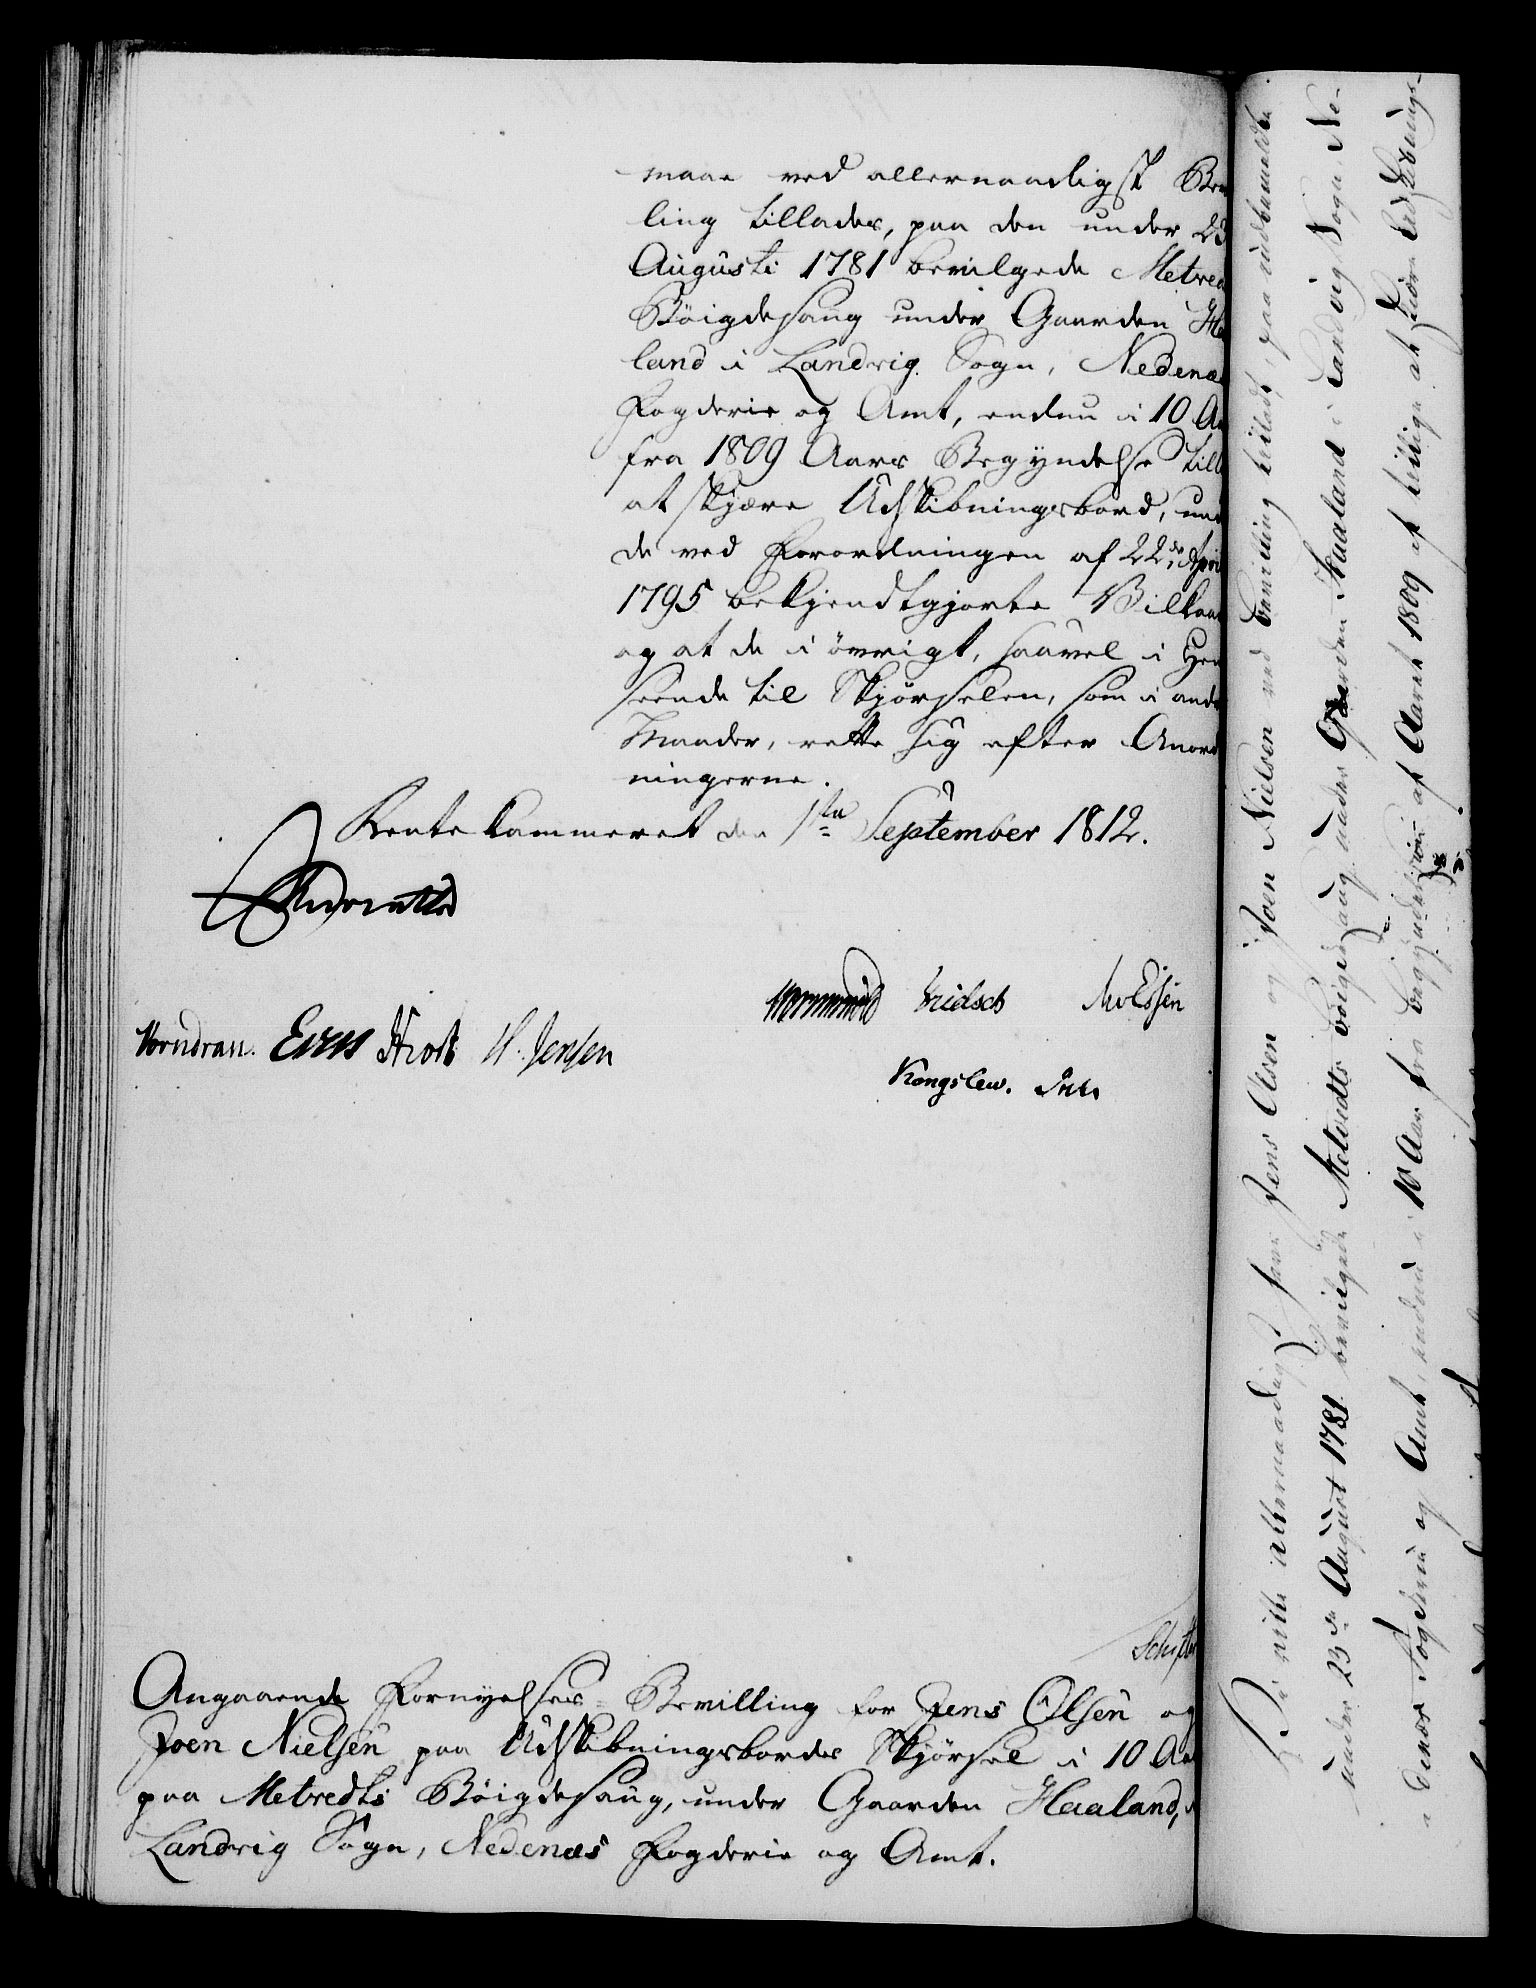 maae ved allernaadigst Be
ling tillades, paa den under 23
Augusti 1781 bevilgede Metved
Böigdesaug under Gaarden Ha
land i Landvig Sogn, Nedenæs
Fogderie og Amt, endnu i 10 Aa
fra 1809 Aars Begyndelse till
at skjære Udskibningsbord, und
de ved Forordningen af 22de April
1795 bekjendtgjorte Vilkaar
og at de i övrigt, saavel i Hen
seende til Skjørselen, som i andr
Maader, rette sig efter Anord
ningerne.
Rentekammeret den 1ste September 1812.
Wormskiold
Vorndran. Hvoss H. Jensen
Kongslew.
Angaaende Fornyelses-Bevilling for Jens Olsen og
Joen Nielsen paa Udskibningsbordes Skjørsel i 10 Aar
paa Metvedts Böigdesaug, under Gaarden Haaland, i
Landvig Sogn, Nedenæs Fogderie og Amt.
Vi ville allernaadigst have Jens Olsen og Joen Nielsen ved Bevilling tilladt, paa
under 23de August 1781 bevilgede Metvedts Böigdesaug under Gaarden Haaland i Landvig Sogn, Ne-
denæs Fogderie og Amt, endnu i 10 Aar fra Begyndelsen af Aaret 1809 at skjære Udskibnings-